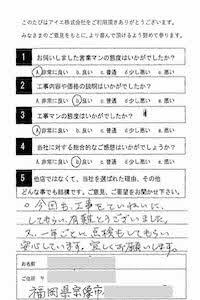 このたびはアイエ株式会社をご利用頂きありがとうございます。
みなさまのご意見をもとに、より喜んで頂けるよう努めて参ります。
1 お伺いしました営業マンの態度はいかがでしたか？
A.非常に良い B.良い C.普通 D.少し悪い E.悪い
2 工事内容や価格の説明はいかがでしたか？
A.非常に良い B.良い C.普通 D.少し悪い E.悪い
3 工事マンの態度はいかがでしたか？
A.非常に良い B.良い C.普通 D.少し悪い E.悪い
4 当社に対する総合的なご感想はいかがでしょうか？
A.非常に良い B.良い C.普通 D.少し悪い E.悪い
5 他店ではなくて、当社を選ばれた理由、その他
どんな事でも結構です。ご意見、ご要望をお聞かせ下さい。
今回も、工事をていねいに、
してもらい、有難とうございました。
又、一年ごとに点検もしてもらい
安心しています。宜しくお願いします。
お名前
ご住所
福岡県宗像市